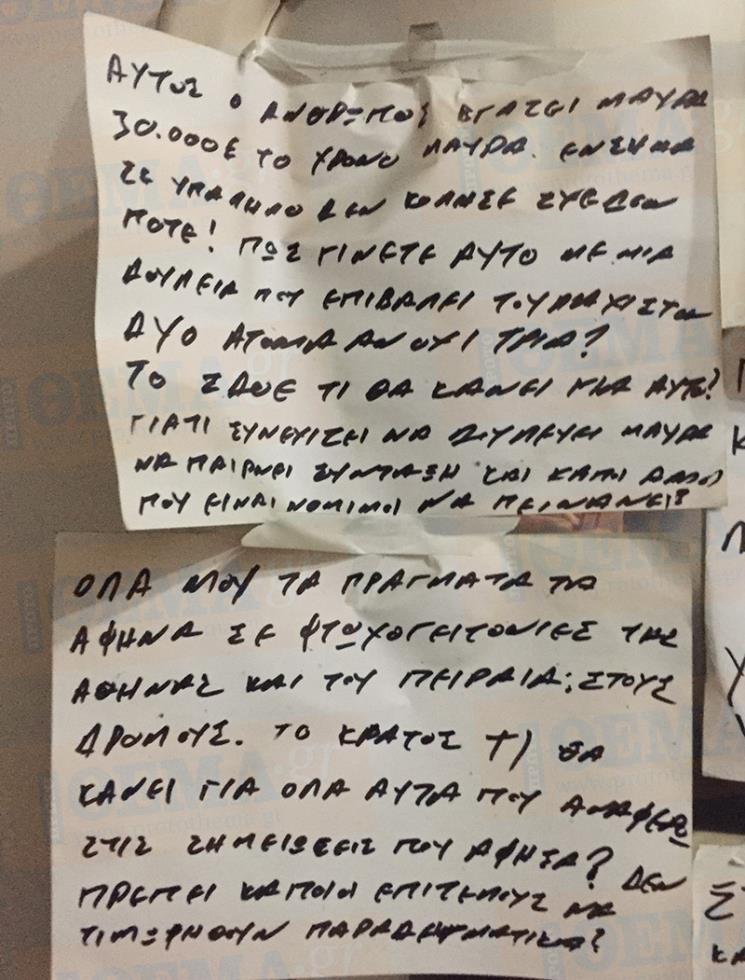 ΑΥΤΟΣ Ο ΑΝΘΡΩΠΟΣ ΒΓΑΖΕΙ ΜΑΥΡΑ
30.000€ ΤΟ ΧΡΟΝΟ ΜΑΥΡΑ. ΕΝΣΗΜΑ
ΣΕ ΥΠΑΛΗΛΟ ΔΕΝ ΚΟΛΗΣΕ ΣΧΕΔΟΝ
ΠΟΤΕ! ΠΩΣ ΓΙΝΕΤΕ ΑΥΤΟ ΜΕ ΜΙΑ
ΔΟΥΛΕΙΑ ΠΟΥ ΕΠΙΒΑΛΕΙ ΤΟΥΛΑΧΙΣΤΟΝ
ΔΥΟ ΑΤΟΜΑ ΑΝ ΟΧΙ ΤΡΙΑ?
ΤΟ ΣΔΟΕ ΤΙ ΘΑ ΚΑΝΕΙ ΓΙΑ ΑΥΤΟ?
ΓΙΑΤΙ ΣΥΝΕΧΙΖΕΙ ΝΑ ΔΟΥΛΕΥΕΙ ΜΑΥΡΑ
ΝΑ ΠΑΙΡΝΕΙ ΣΥΝΤΑΞΗ ΚΑΙ ΚΑΠΟΙ ΑΛΛΟΙ
ΠΟΥ ΕΙΝΑΙ ΝΟΜΙΜΟΙ ΝΑ ΠΕΙΝΑΝΕ!?
ΟΛΑ ΜΟΥ ΤΑ ΠΡΑΓΜΑΤΑ ΤΑ
ΑΦΗΝΑ ΣΕ ΦΤΩΧΟΓΕΙΤΟΝΙΕΣ ΤΗΣ
ΑΘΗΝΑΣ ΚΑΙ ΤΟΥ ΠΕΙΡΑΙΑ; ΣΤΟΥΣ
ΔΡΟΜΟΥΣ. ΤΟ ΚΡΑΤΟΣ ΤΙ ΘΑ
ΚΑΝΕΙ ΓΙΑ ΟΛΑ ΑΥΤΑ ΠΟΥ ΑΝΑΦΕΡΩ
ΣΤΙΣ ΣΗΜΕΙΩΣΕΙΣ ΠΟΥ ΑΦΗΣΑ? ΔΕΝ
ΠΡΕΠΕΙ ΚΑΠΟΙΟΙ ΕΠΙΤΕΛΟΥΣ ΝΑ
ΤΙΜΩΡΗΘΟΥΝ ΠΑΡΑΔΗΓΜΑΤΙΚΑ?